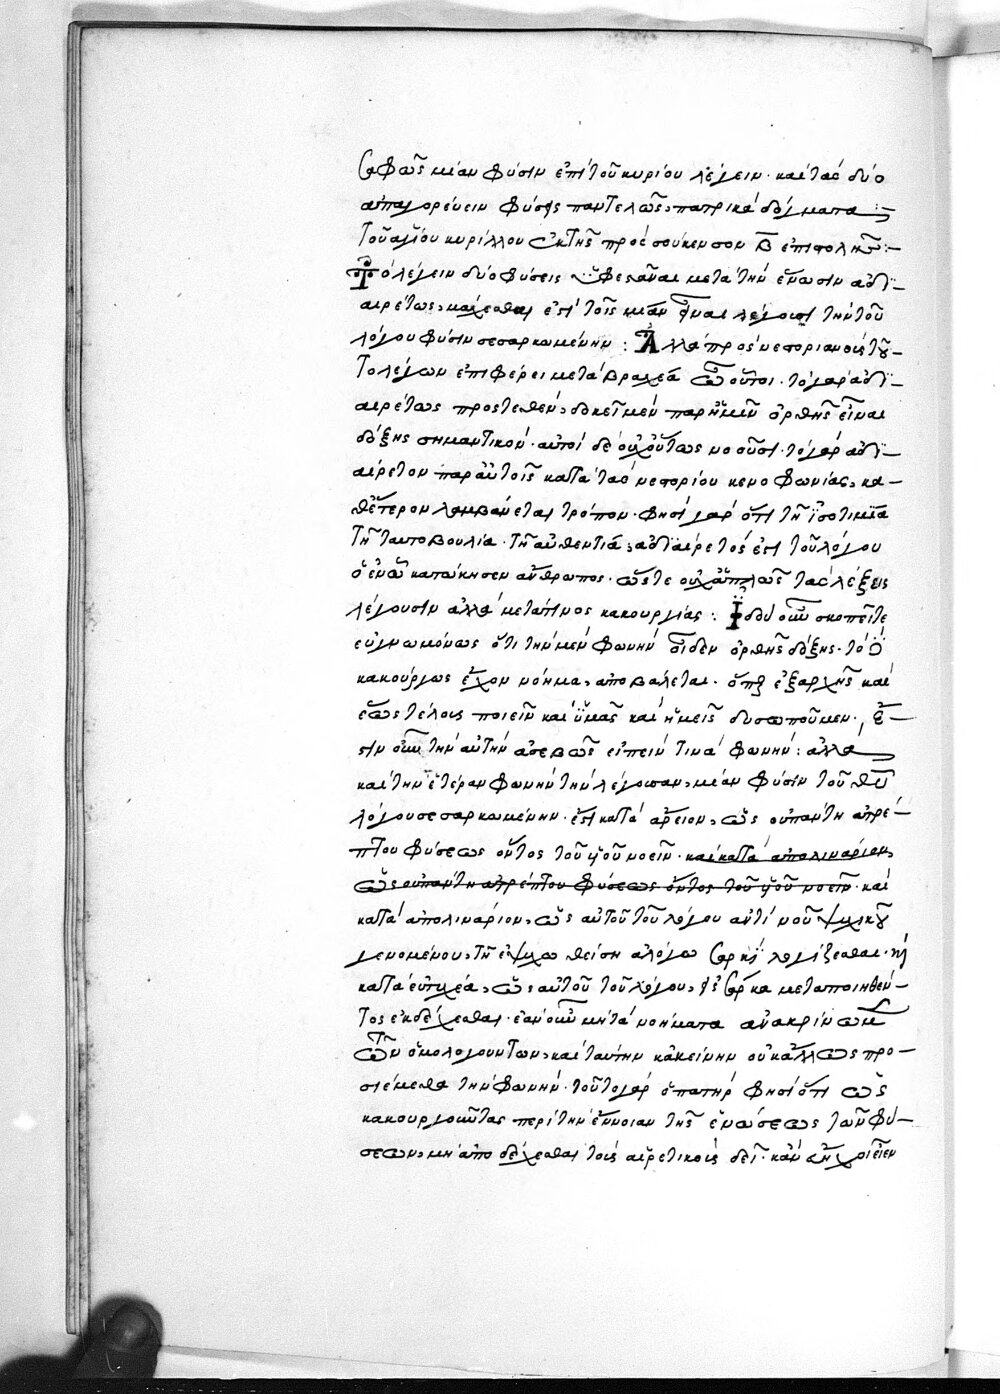 σαφῶς μίαν φύσιν ἐπὶ τοῦ κυρίου λέγειν· καὶ τὰς δύο
ἀπαγορεύειν φύσεις παντελῶς, πατρικὰ δόγματα :~
Τοῦ ἁγίου κυρίλλου ἐκ τῆς πρὸς σούκενσον β̅ ἐπιστολῆς :–
Τὸ λέγειν δύο φύσεις ὑφεστάναι μετὰ τὴν ἕνωσιν ἀδι–
αιρέτως, μάχεσθαι ἐστὶ τοῖς μίαν εἶναι λέγουσι τὴν τοῦ
λόγου φύσιν σεσαρκωμένην : Ἀλλὰ πρὸς νεστοριανοὺς τοῦ–
το λέγων ἐπιφέρει μετὰ βραχέα ὧν οὗτοι· τὸ γὰρ ἀδι–
αιρέτως προστεθὲν, δοκεῖ μὲν παρ' ἡμῖν ὀρθῆς εἶναι
δόξης σημαντικόν· αὐτοὶ δὲ οὐχ οὕτως νοοῦσι· τὸ γὰρ ἀδι–
αίρετον παρ' αὐτοῖς κατὰ τὰς νεστορίου κενοφωνίας, κα–
θ' ἕτερον λαμβάνεται τρόπον· φησὶ γὰρ ὅτι τῇ ἰσοτιμίᾳ
τῇ ταυτοβουλίᾳ· τῇ αὐθεντίᾳ, ἀδιαίρετός ἐστι τοῦ λόγου
ὁ ἐν ᾧ κατώκησεν ἄνθρωπος· ὥστε οὐχ ἁπλῶς τὰς λέξεις
λέγουσιν ἀλλὰ μετά τινος κακουργίας : Ἰδοὺ οὖν σκοπεῖτε
εὐγνωμόνως ὅτι τὴν μὲν φωνὴν οἶδεν ὀρθῆς δόξης· τὸ δὲ
κακούργως ἔχον νόημα, ἀποβάλεται· ὅπερ ἐξ ἀρχῆς καὶ
ἕως τέλους ποιεῖν καὶ ὑμᾶς καὶ ἡμεῖς δυσωποῦμεν· ἔ–
στιν οὖν τὴν αὐτὴν ἀσεβῶς εἰπεῖν τινὰ φωνήν : ἀλλὰ
καὶ τὴν ἑτέραν φωνὴν τὴν λέγουσαν, μίαν φύσιν τοῦ θεοῦ
λόγου σεσαρκωμένην· ἔστι κατὰ ἄρειον, ὡς οὐ πάντη ἀτρέ–
πτου φύσεως ὄντος τοῦ υἱοῦ νοεῖν· καὶ κατὰ ἀπολινάριον,
ὡς οὐ πάντη ἀτρέπτου φύσεως ὄντος τοῦ υἱοῦ νοεῖν· καὶ
κατὰ ἀπολινάριον, ὡς αὐτοῦ τοῦ λόγου ἀντὶ νοῦ ψυχικοῦ
γενομένου, τῇ ἐψυχωθείσῃ ἀλόγῳ σαρκὶ λογίζεσθαι· ἢ
κατὰ εὐτυχέα, ὡς αὐτοῦ τοῦ λόγου, εἰς σάρκα μεταποιηθέν–
τος ἐκδέχεσθαι· ἐὰν οὖν μὴ τὰ νοήματα ἀνακρίνωμεν
τῶν ὁμολογούντων, καὶ ταύτην κἀκείνην οὐ καλῶς προ–
σιέμεθα τὴν φωνήν· τοῦτο γὰρ ὁ πατὴρ φησὶ ὅτι ὡς
κακουργοῦντας περὶ τὴν ἔννοιαν τῆς ἑνώσεως τῶν φύ–
σεων, μὴ ἀποδέχεσθαι τοὺς αἱρετικοὺς δεῖ· κἂν συγχοῖεν